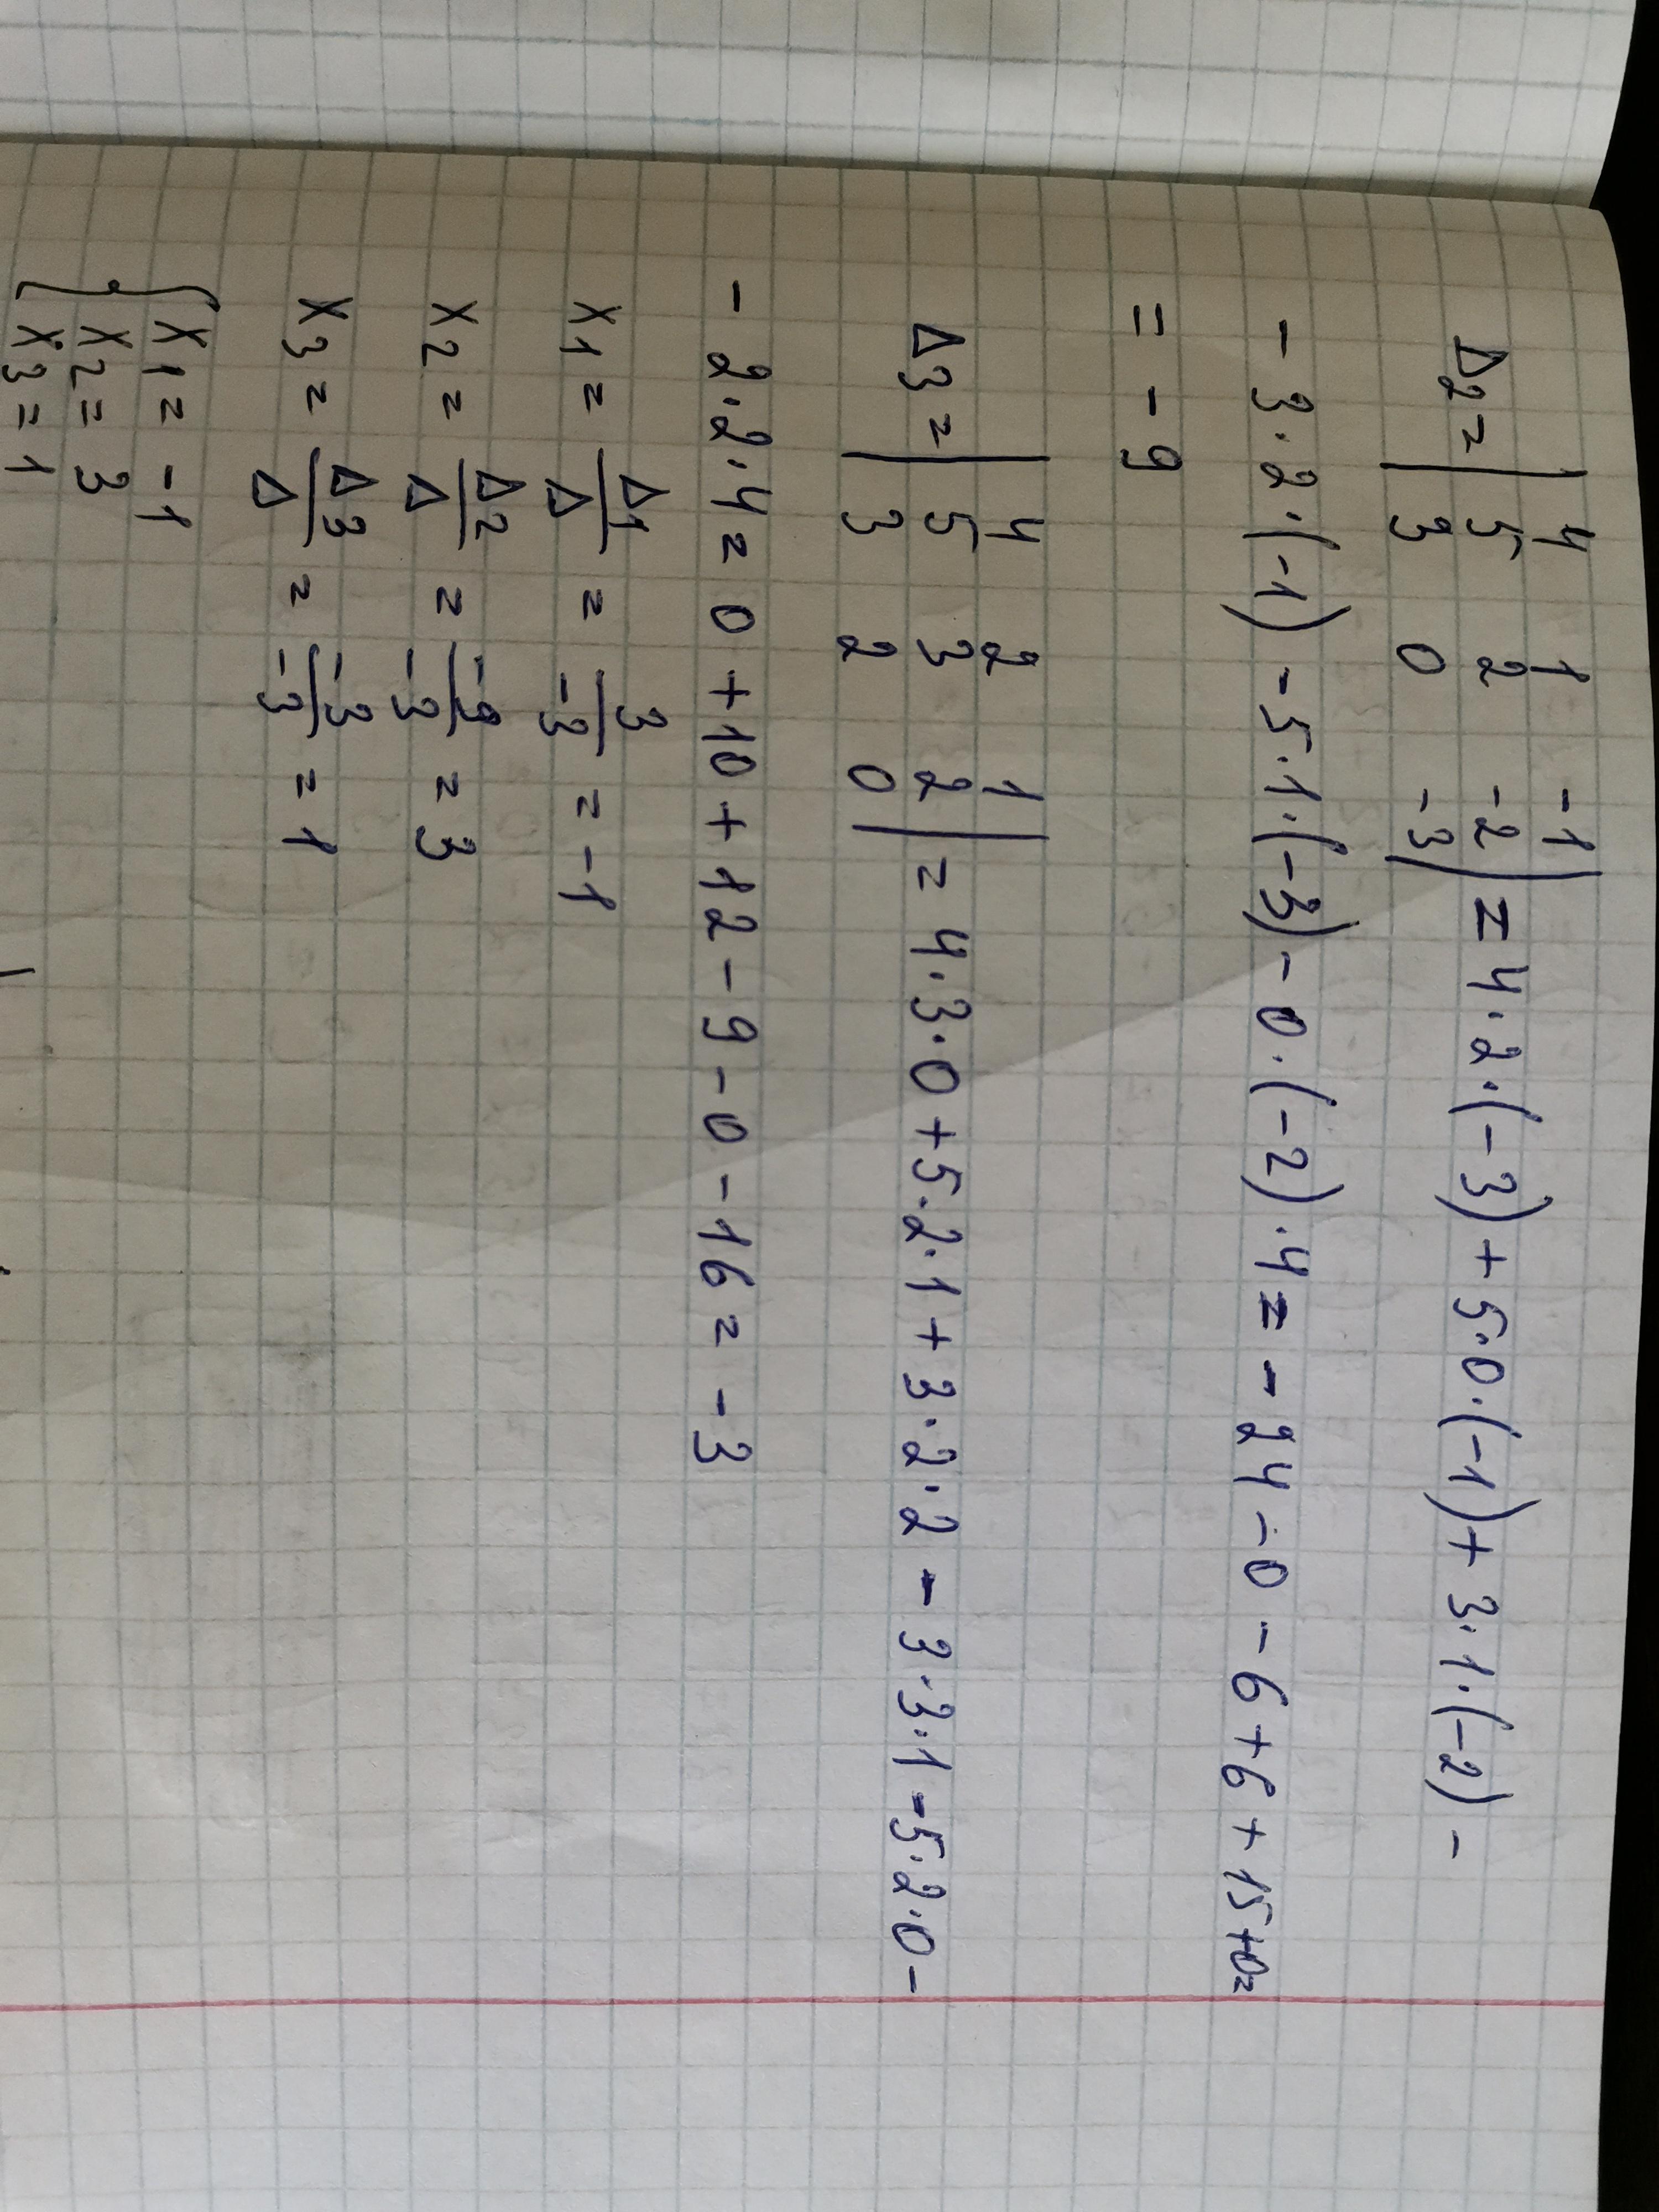 4 1 -1
Δ2 = | 5 2 -2 | = 4·2·(-3) + 5·0·(-1) + 3·1·(-2) -
3 0 -3
- 3·2·(-1) - 5·1·(-3) - 0·(-2)·4 = - 24 - 0 - 6 + 6 + 15 + 0 =
= - 9
4 2 1
Δ3 = | 5 3 2 | = 4·3·0 + 5·2·1 + 3·2·2 - 3·3·1 - 5·2·0 -
3 2 0
- 2·2·4 = 0 + 10 + 12 - 9 - 0 - 16 = - 3
x1 = Δ1/Δ = 3/-3 = -1
x2 = Δ2/Δ = -9/-3 = 3
x3 = Δ3/Δ = -3/-3 = 1
{ x1 = -1
x2 = 3
x3 = 1